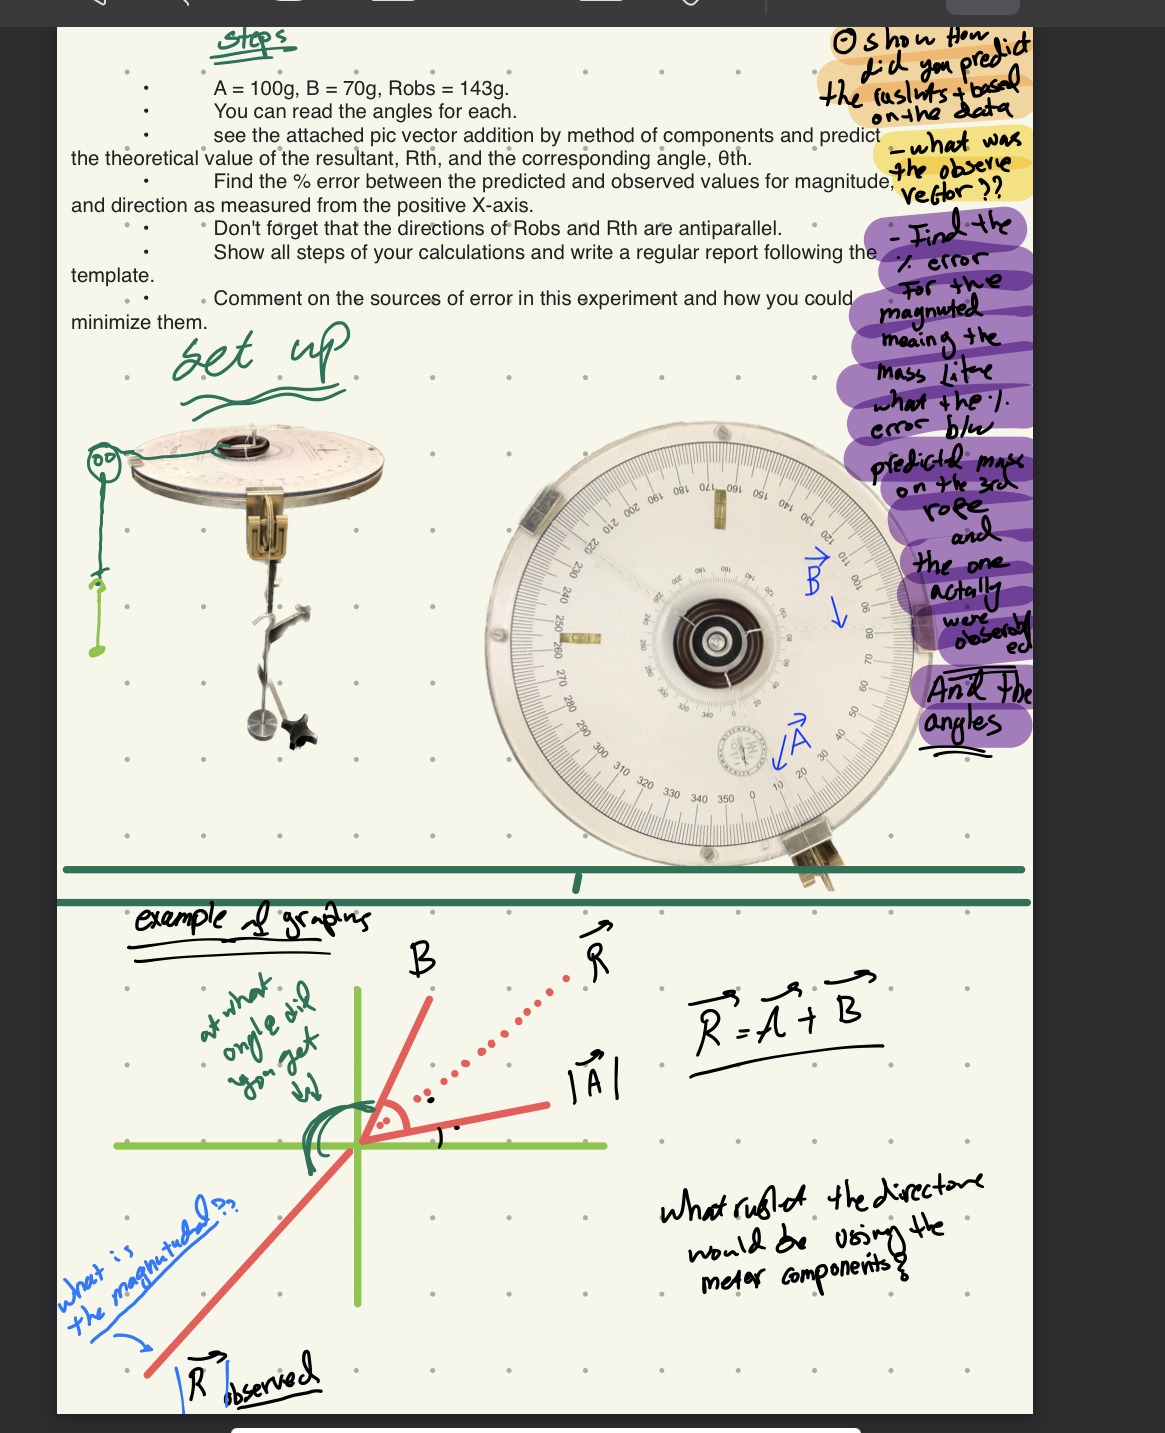 steps
A = 100g, B = 70g, Robs = 143g.
You can read the angles for each.
see the attached pic vector addition by method of components and predict
the theoretical value of the resultant, Rth, and the corresponding angle, θth.
Find the % error between the predicted and observed values for magnitude,
and direction as measured from the positive X-axis.
Don't forget that the directions of Robs and Rth are antiparallel.
Show all steps of your calculations and write a regular report following the
template.
Comment on the sources of error in this experiment and how you could
minimize them.
show How
did you predict
the + based
on the data
- what was
the observe
vector??
- Find the
% error
For the
meaing the
mass
what the %
error b/w
mass
on the 3rd
rope
and
the one
actally
were
And the
angles
set up
B
A
0 10 20 30 40 50 60 70 80 90 100 110 120 130 140 150 160 170 180 190 200 210 220 230 240 250 260 270 280 290 300 310 320 330 340 350
example of graphing
B
R
|A|
R = A + B
at what
angle did
you get
what is
the
|R| observed
What the
would be using the
components?